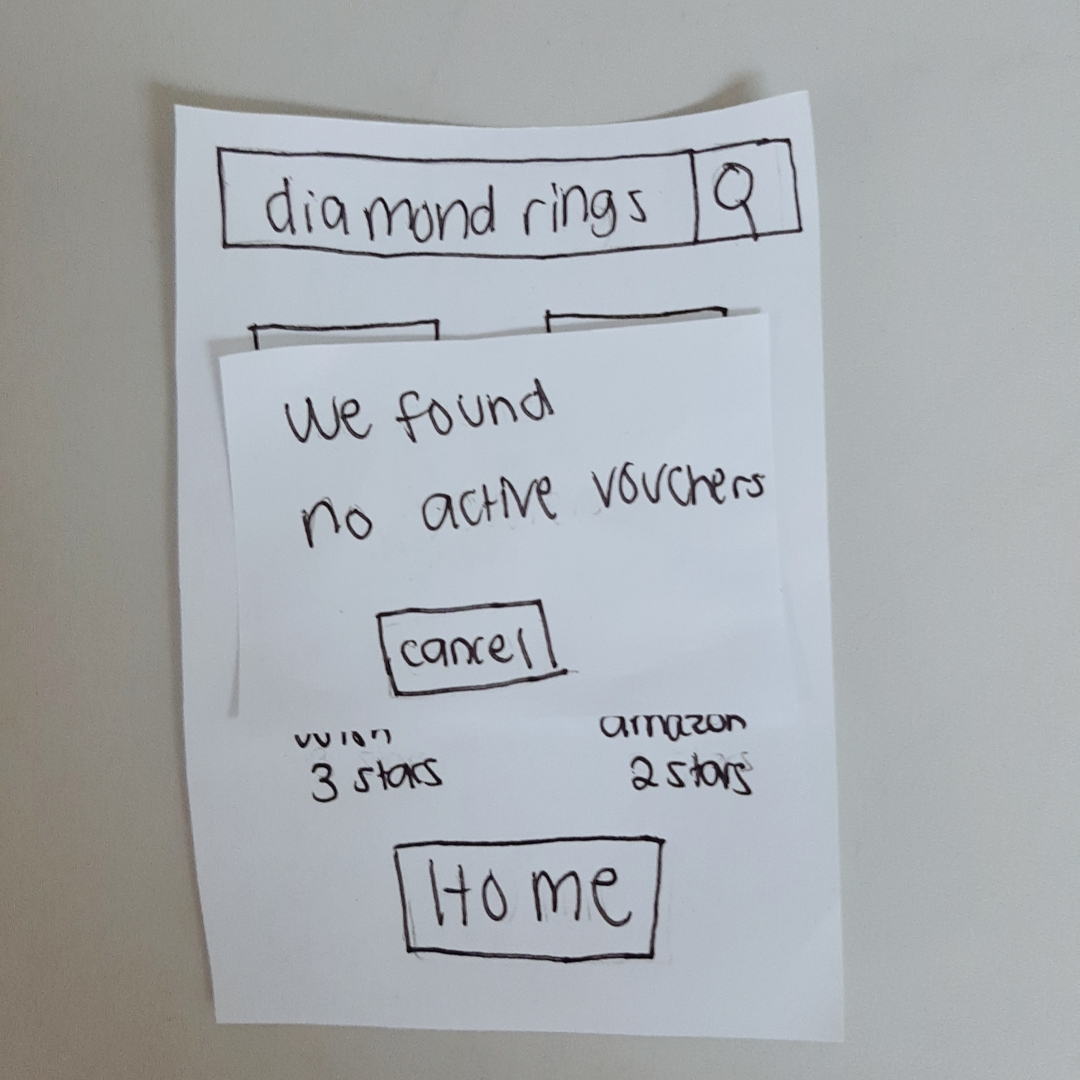 diamond rings
We found
no active vouchers
cancel
amazon
3 stars
2 stars
Home